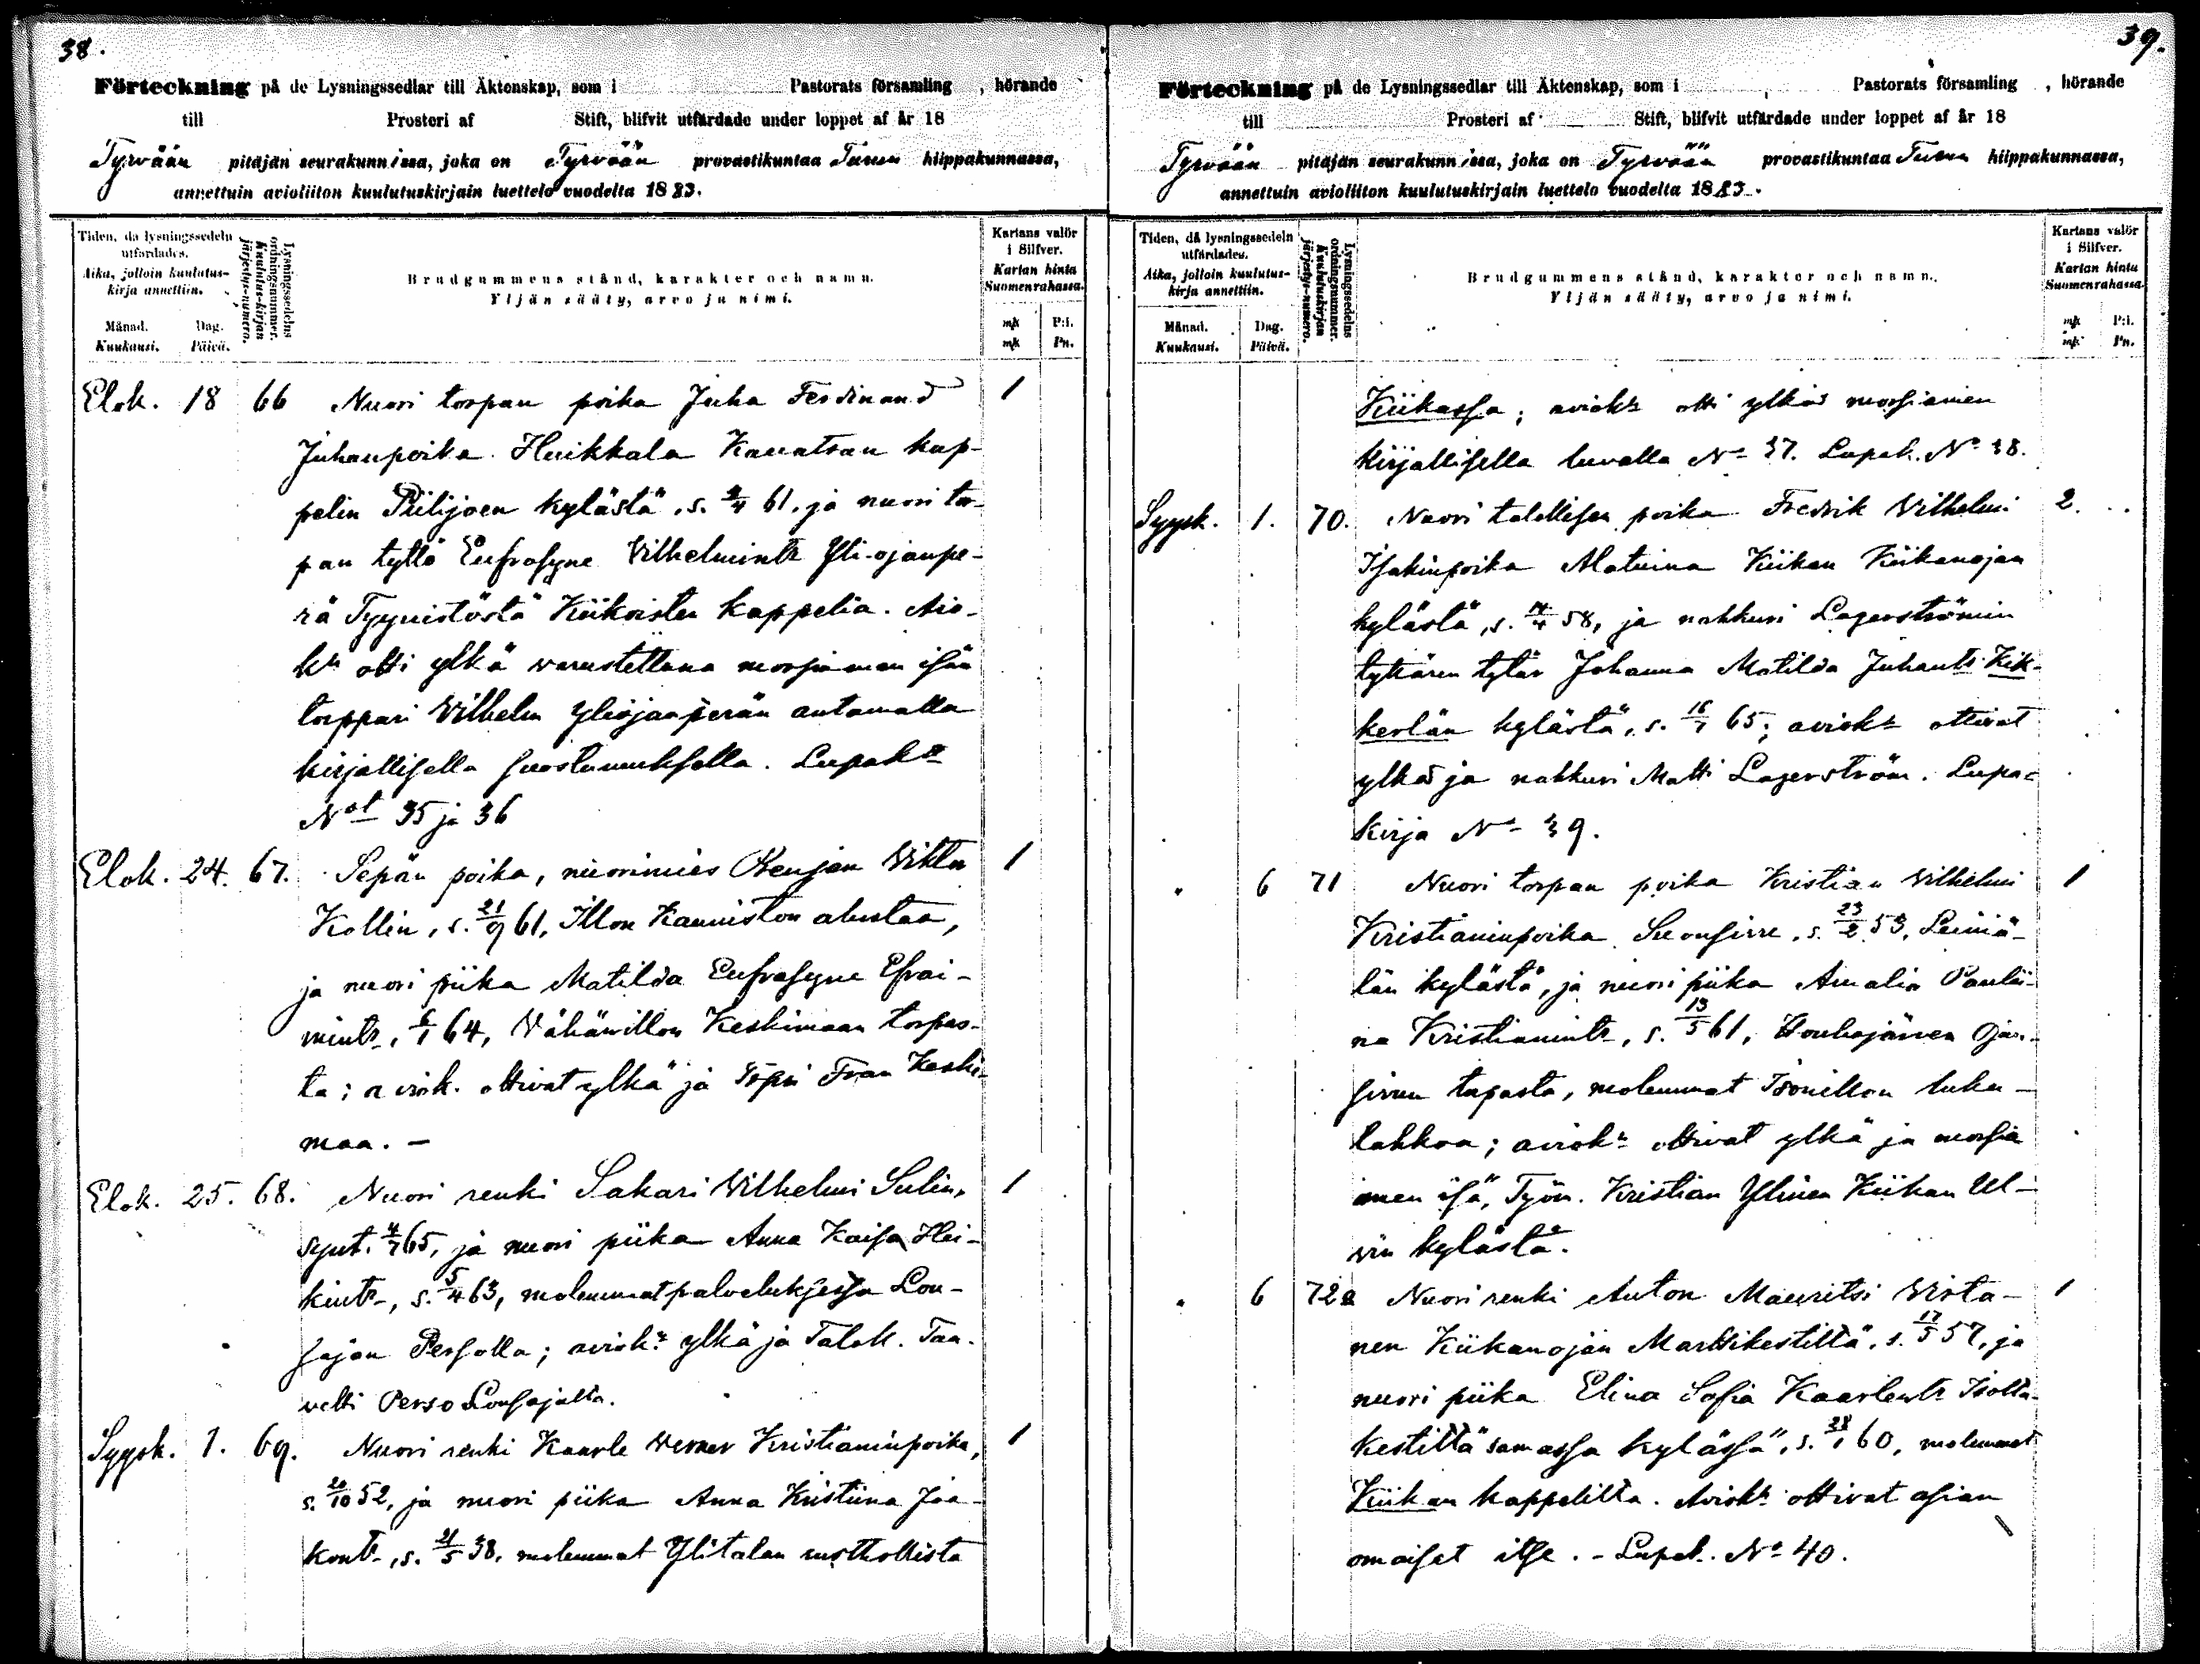 38.
Förteckning på de Lysningssedlar till Äktenskap, som i Pastorats församling , hörande
till Prosteri af Stift, blifvit utfärdade under loppet af år 18
Tyrvään pitäjän seurakunnissa, joka on Tyrvään provastikuntaa Turun hiippakunnassa,
annettuin avioliiton kuulutuskirjain luettelo vuodelta 1883.
Tiden, då lysningssedeln
utfärdades.
Aika, jolloin kuulutus-
kirja annettiin.
Månad. Dag.
Kuukausi. Päivä.
Lysningssedelns
ordningsnummer.
Kuulutus-kirjan
järjestys-numero.
Brudgummens stånd, karakter och namn.
Yljän sääty, arvo ja nimi.
Kartans valör
i Silfver.
Kartan hinta
Suomenrahassa.
mk P:i.
mk Pn.
Elok. 18 66 Nuori torpan poika Juha Ferdinand 1
Juhanpoika Huikkala Kauatsan kap-
pelin Piilijoen kylästä, s. 4 61, ja nuori tor-
pan tyttö Eufrosyne Vilhelmintr Yli-ojanpe-
rä Tyynistöstä Kiikoisten kappelia. Avio-
kn otti ylkä varustettuna morsiaman isän
torppari Vilhelm Yliojanperän antamalla
kirjallisella suostumuksella. Lupak
Not 35 ja 36
Elok. 24. 67. Sepän poika, nuorimies Benjan Viktor 1
Kollin, s. 21/9 61, Illon Kanniston alustaa,
ja nuori piika Matilda Eufrosyne Efrai-
mintr, 6/1 64, Vähänillon Keskimaan torpas-
ta; aviok. ottivat ylkä ja Fran Keski-
maa. —
Elok. 25. 68. Nuori renki Sakari Vilhelmi Sulin, 1
synt. 4/7 65, ja nuori piika Anna Kaisa Hei-
kintr, s. 5/4 63, molemmat palveluksessa Lou-
sajan Persolla; aviok: ylkä ja Talok. Taa-
vetti Perso Lousajalta.
Syysk. 1. 69. Nuori renki Kaarle Werner Kristianinpoika, 1
s. 10 52, ja nuori piika Anna Kristiina Jaa-
kontr, s. 21/5 38, molemmat Ylitalan rusthollista
39.
Förteckning på de Lysningssedlar till Äktenskap, som i Pastorats församling , hörande
till Prosteri af Stift, blifvit utfärdade under loppet af år 18
Tyrvään pitäjän seurakunnissa, joka on Tyrvään provastikuntaa Turun hiippakunnassa,
annettuin avioliiton kuulutuskirjain luettelo vuodelta 1883.
Tiden, då lysningssedeln
utfärdades.
Aika, jolloin kuulutus-
kirja annettiin.
Månad. Dag.
Kuukausi. Päivä.
Lysningssedelns
ordningsnummer.
Kuulutuskirjan
järjestys-numero.
Brudgummens stånd, karakter och namn.
Yljän sääty, arvo ja nimi.
Kartans valör
i Silfver.
Kartan hinta
Suomenrahassa.
mk P:i.
mk Pn.
Kiikassa; aviok: otti ylkä morsiamen
kirjallisella luvalla No 37. Lupak. No 38.
Syysk. 1. 70. Nuori talollisen poika Fredrik Vilhelmi 2.
Isakinpoika Matuina Kiikan Kiikanojan
kylästä, s. 4 58, ja nahkuri Lagerströmin
tyttären tytär Johanna Matilda Juhantr Kik-
kerlän kylästä, s. 16/7 65; aviok: ottivat
ylkä ja nahkuri Matti Lagerström. Lupa-
kirja No 39.
" 6 71 Nuori torpan poika Kristian Vilhelmi 1
Kristianinpoika Suonsirre, s. 23/2 53, Leiniä-
län kylästä, ja nuori piika Amalia Paulii-
na Kristianintr, s. 13/5 61, Houhajärven Ojan-
sivun tapasta, molemmat Isonillon luku-
lahkoa; aviok: ottivat ylkä ja morsia
men isä, Työn. Kristian Ylinen Kiikan Ul-
vin kylästä.
" 6 72 Nuori renki Anton Mauritsi Virta- 1
nen Kiikanojan Marttikestiltä, s. 17/5 57, ja
nuori piika Elina Sofia Kaarlentr Isolta-
kestiltä samassa kylässä, s. 28/1 60, molemmat
Kiikan kappelilta. Aviok: ottivat asian
omaiset itse. - Lupak. No 40.